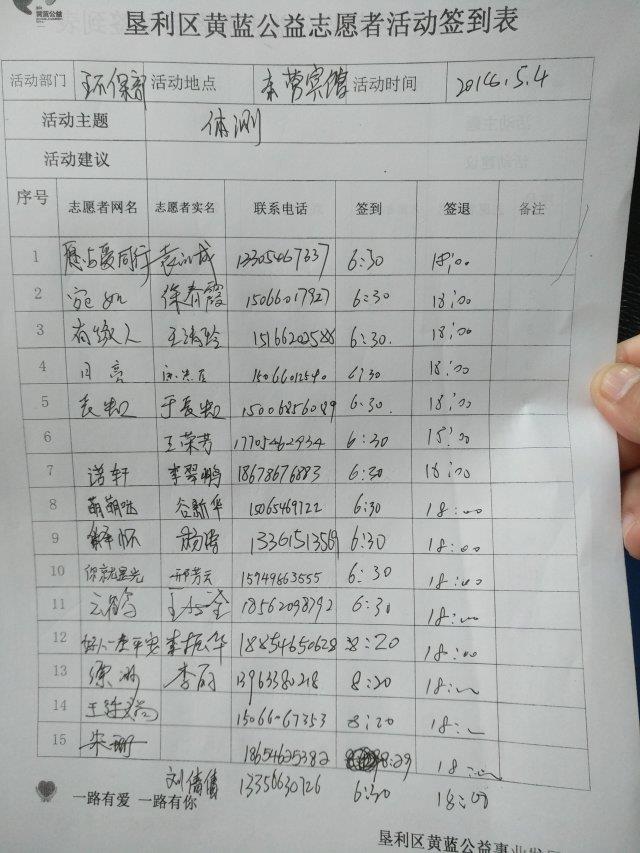 黄蓝公益
垦利区黄蓝公益志愿者活动签到表
活动部门 环保部 活动地点 东营宾馆 活动时间 2016.5.4
活动主题 体测
活动建议
序号 志愿者网名 志愿者实名 联系电话 签到 签退 备注
1 愿与爱同行 13305467337 6:30 18:00
2 宛如 徐有霞 15066017927 6:30 18:00
3 有缘人 15166202588 6:30. 18:00
4 月亮 15066012540 6:30 18:00
5 15006856089 6:30. 18:00
6 王荣芳 17705462934 6:30 18:00
7 诺轩 李翠鹏 18678676883 6:30 18:00
8 萌萌哒 谷新华 15065469722 6:30 18:00
9 释怀 杨涛 13361513569 6:30 18:00
10 你就是光 邢芳云 15949663555 6:30 18:00
11 云鹤 18562098792 6:30 18:00
12 好人一生平安 李振华 18854650628 8:20 18:00
13 李丽 13963380218 8:20 18:00
14 15066067353 8:20 18:00
15 朱珊 18654625382 8:29 18:00
刘倩倩 13356630726 6:30 18:00
一路有爱 一路有你
垦利区黄蓝公益事业发展